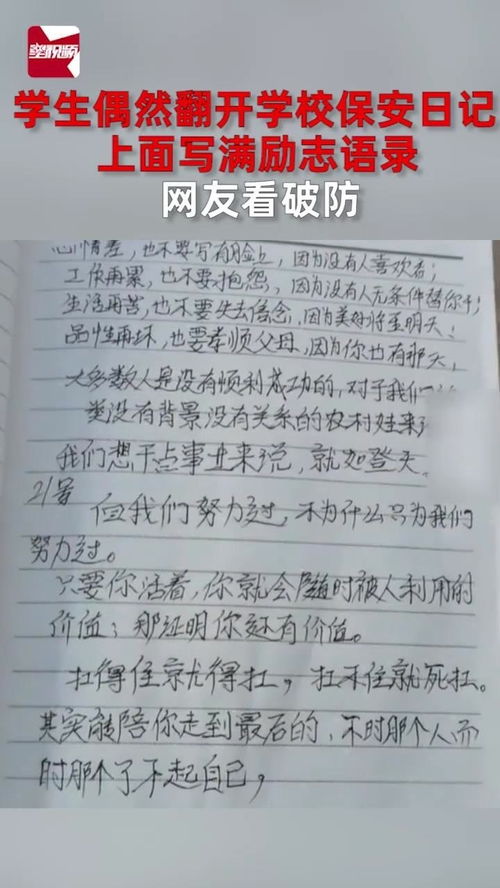 学生偶然翻开学校保安日记
上面写满励志语录
网友看破防
心情差,也不要写在脸上,因为没有人喜欢看;
工作再累,也不要抱怨,因为没有人无条件替你干;
生活再苦,也不要失去信念,因为美好将至明天!
品性再坏,也要孝顺父母,因为你也有那天,
大多数人是没有顺利成功的,对于我们
类没有背景没有关系的农村娃来
我们想干点事业来说,就如登天
21号
但我们努力过,不为什么只为我们
努力过。
只要你活着,你就会随时被人利用的
价值;那证明你还有价值。
扛得住就得扛,扛不住就死扛。
其实能陪你走到最后的,不时那个人而
时那个了不起自己,